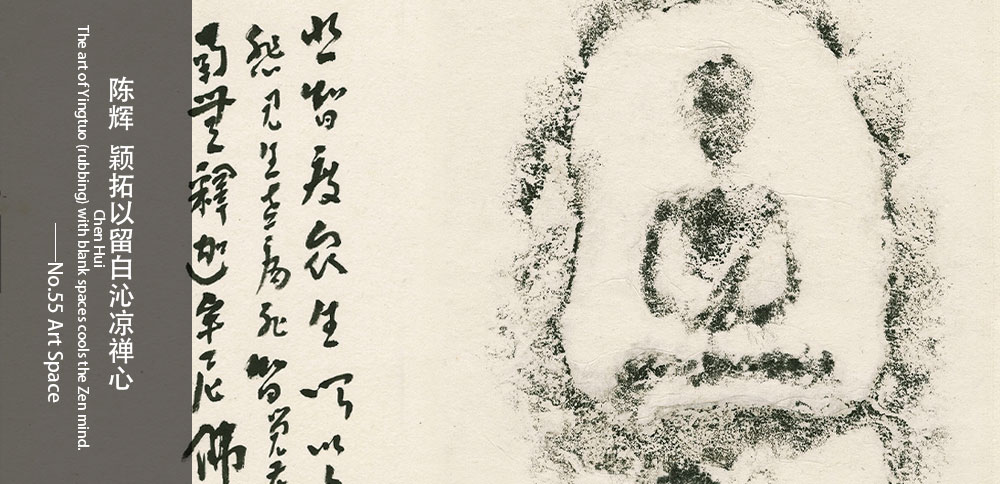 陈辉 颖拓以留白沁凉禅心
Chen Hui
The art of Yingtuo (rubbing) with blank spaces cools the Zen mind.
——No.55 Art Space
智度众生 以
见生老病死智觉
南無釋迦牟尼佛